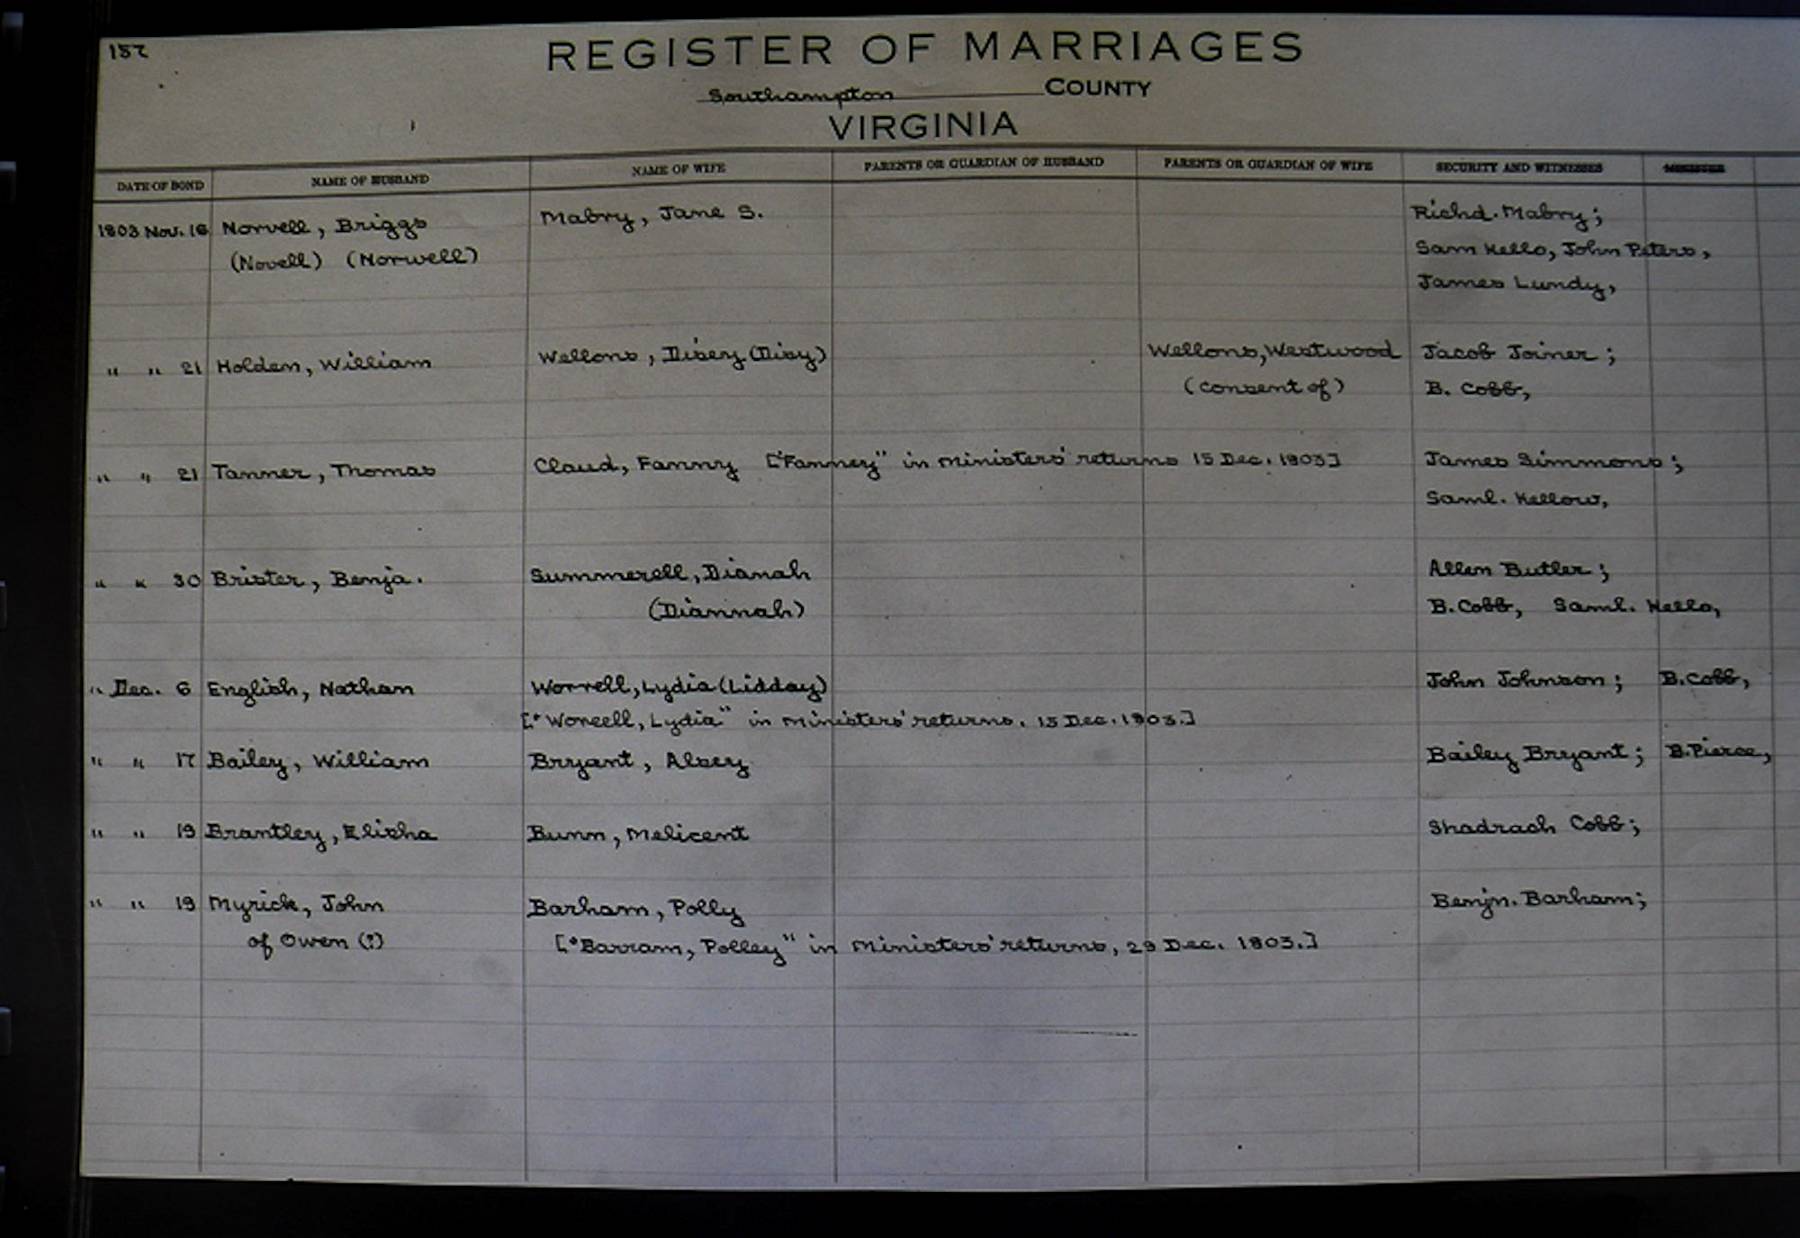 157
REGISTER OF MARRIAGES
Southampton COUNTY
VIRGINIA
DATE OF BOND NAME OF HUSBAND NAME OF WIFE PARENTS OR GUARDIAN OF HUSBAND PARENTS OR GUARDIAN OF WIFE SECURITY AND WITNESSES MINISTER
1803 Nov. 16 Norvell, Briggs Mabry, Jane S. Richd. Mabry;
(Novell) (Norwell) Sam Kello, John Peters,
James Lundy,
" " 21 Holden, William Wellons, Disey (Disy) Wellons, Westwood Jacob Joiner;
(consent of) B. Cobb,
" " 21 Tanner, Thomas Claud, Fanny ["Fanney" in Ministers' returns 15 Dec. 1803] James Simmons;
Saml. Kellow,
" " 30 Brister, Benja. Summerell, Dianah Allen Butler;
(Diannah) B. Cobb, Saml. Kello,
" Dec. 6 English, Nathan Worrell, Lydia (Lidday) John Johnson; B. Cobb,
["Woreell, Lydia" in Ministers' returns. 15 Dec. 1803.]
" " 17 Bailey, William Bryant, Alsey Bailey Bryant; B. Pierce,
" " 19 Brantley, Elisha Bunn, Melicent Shadrach Cobb;
" " 19 Myrick, John Barham, Polly Benjn. Barham;
of Owen (?) ["Barram, Polley" in Ministers' returns, 29 Dec. 1803.]